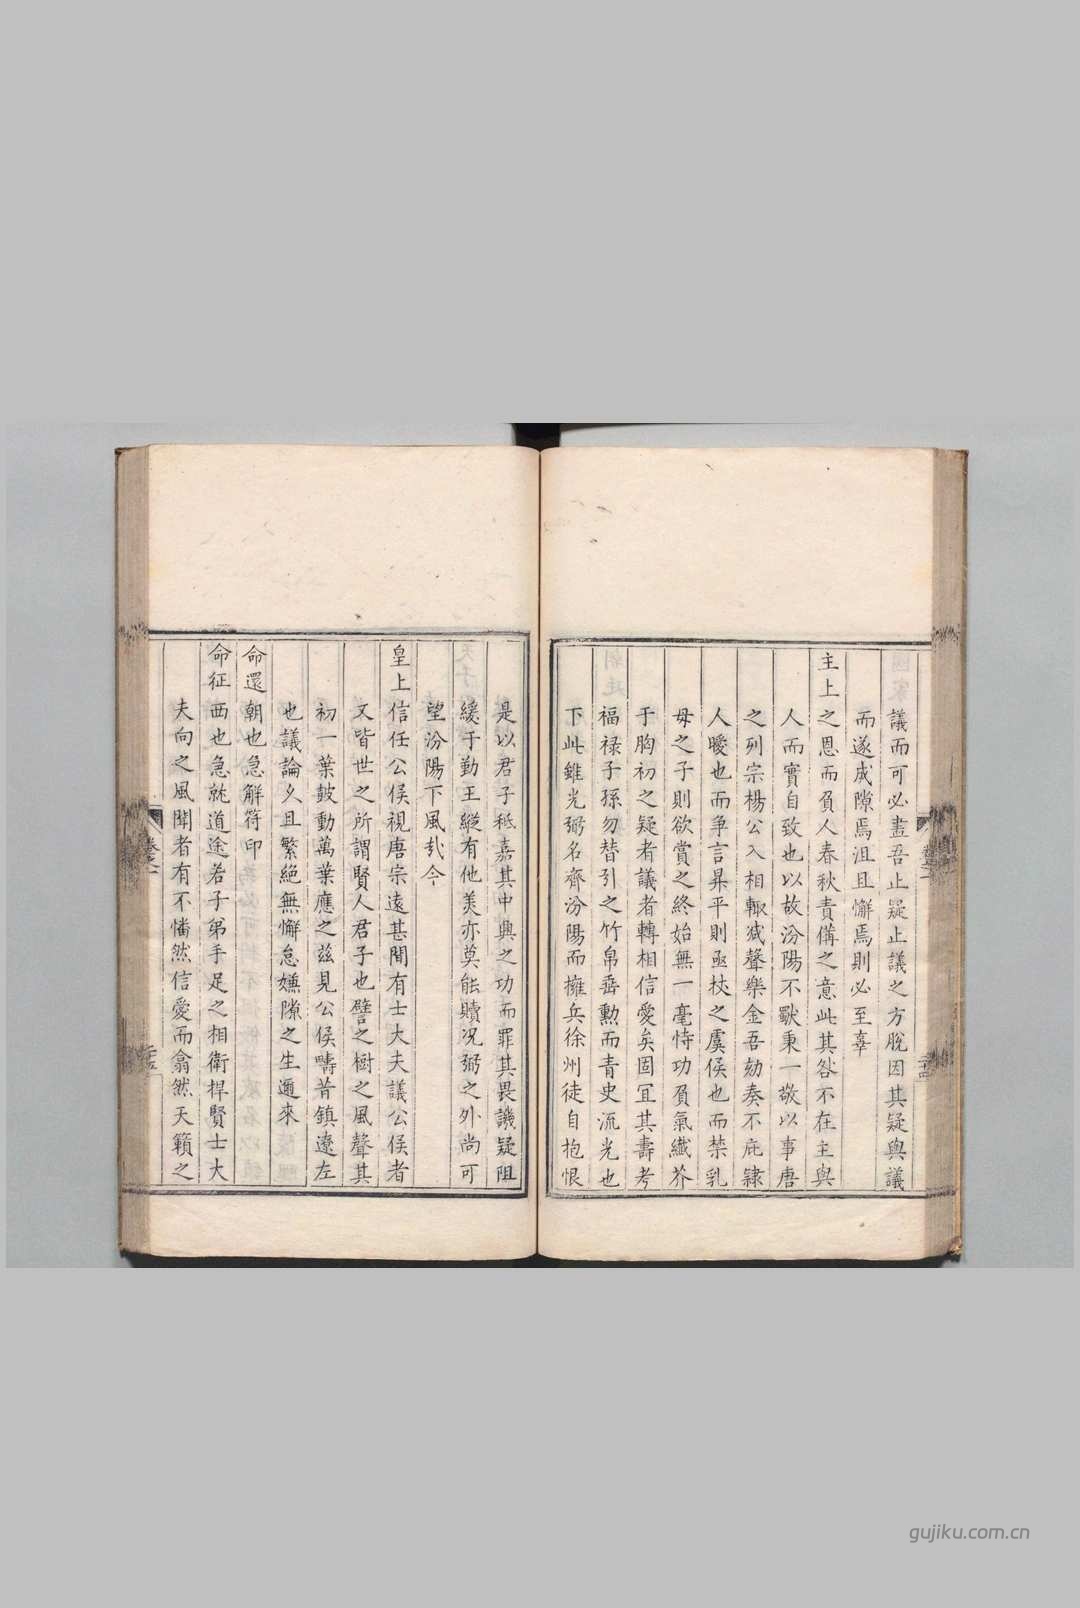 議而可必盡吾止疑止議之方脫因其疑與議
而遂成隙焉沮且懈焉則必至辜
主上之恩而負人春秋責備之意此其咎不在主與
人而實自致也以故汾陽不獸秉一敬以事唐
之列宗楊公入相輙減聲樂金吾劾奏不庇隸
人曖也而争言昇平則亟杖之虞侯也而禁乳
母之子則欲賞之終始無一毫恃功負氣纖芥
于胸初之疑者議者轉相信愛矣固宜其壽考
福祿子孫勿替引之竹帛垂勲而青史流光也
下此雖光弼名齊汾陽而擁兵徐州徒自抱恨
是以君子秪嘉其中興之功而罪其畏譏疑阻
緩于勤王縱有他美亦莫能贖况弼之外尚可
望汾陽下風㢤今
皇上信任公侯視唐宗遠甚聞有士大夫議公侯者
又皆世之所謂賢人君子也譬之樹之風聲其
初一葉皷動萬葉應之兹見公侯疇昔鎮遼左
也議論乆且繁絕無懈怠嫌隙之生邇來
命還朝也急解符印
命征西也急就道途若子弟手足之相衛桿賢士大
夫向之風聞者有不憣然信愛而翕然天籟之
卷之二
二十四
卷之二
二十五
gujiku.com.cn